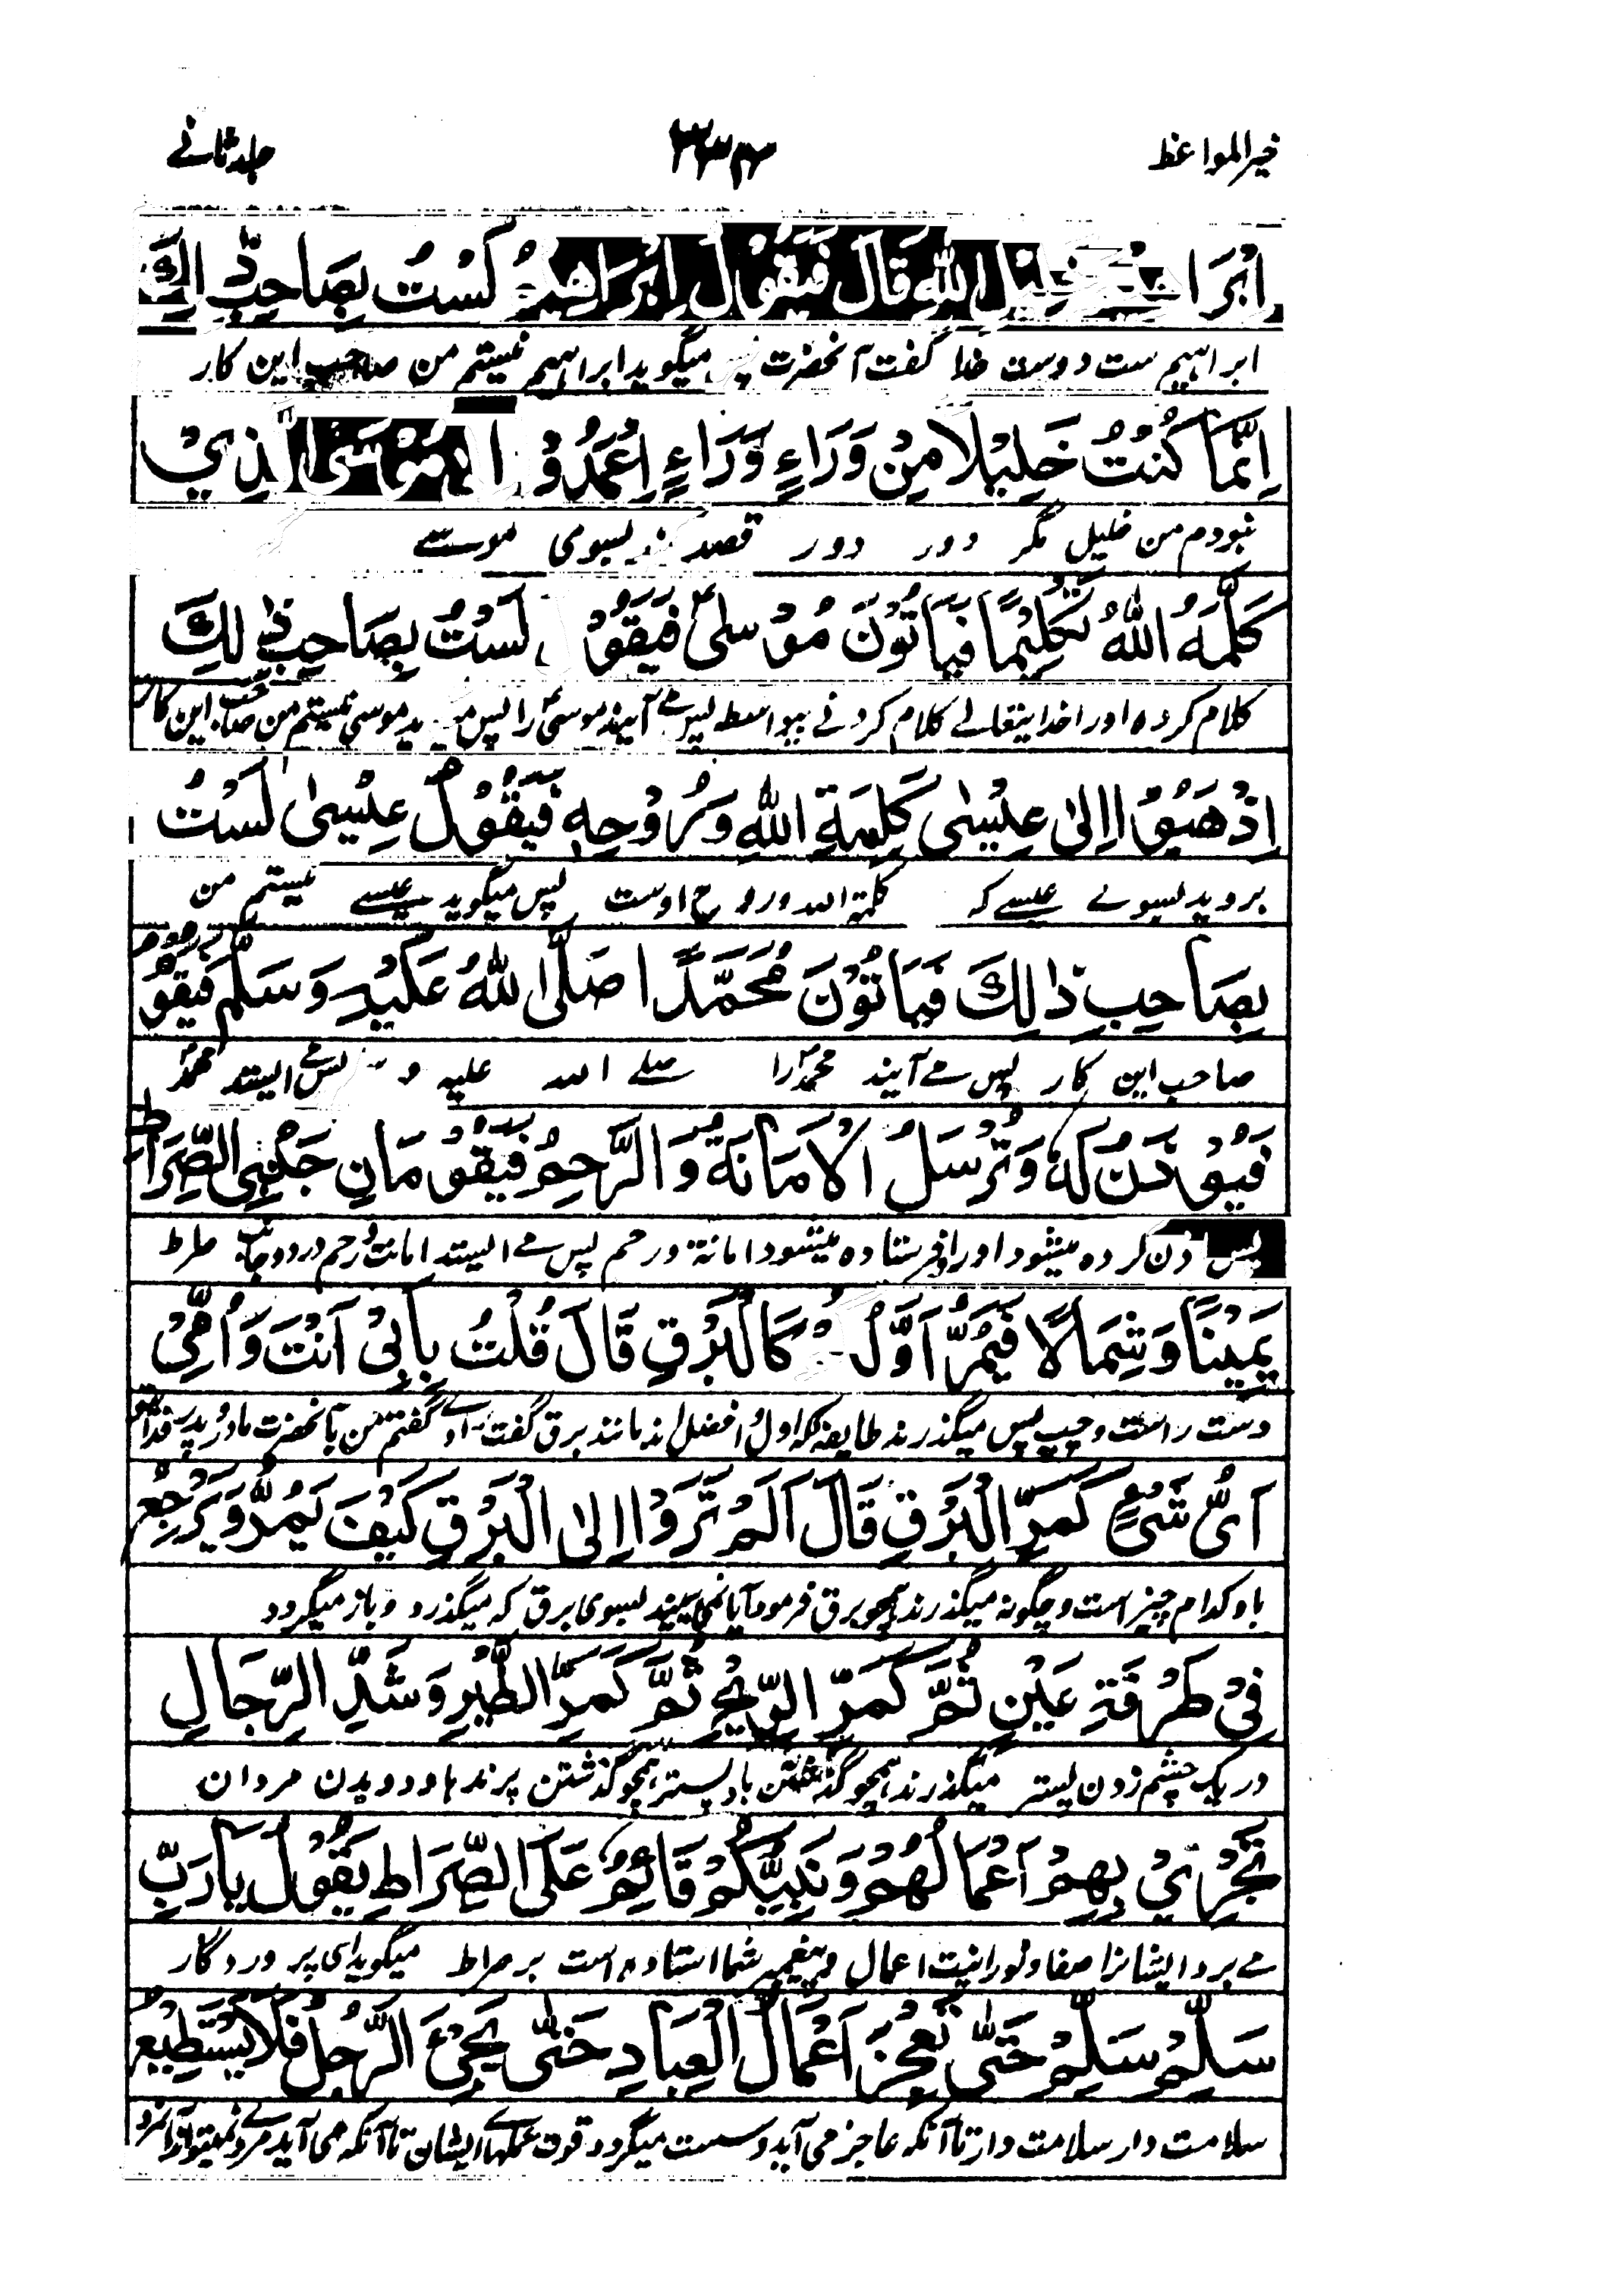 خیر المواعظ ۳۳۴ جلد ثانے
اِبْرَاهِيْمَ خَلِيْلِ اللّٰهِ قَالَ فَيَقُوْلُ اِبْرَاهِيْمُ لَسْتُ بِصَاحِبِ ذٰلِكَ
ابراہیم ست دوست خدا گفت آنحضرت پس میگوید ابراہیم نیستم من صاحب این کار
اِنَّمَا كُنْتُ خَلِيْلًا مِنْ وَرَاءٍ وَرَاءٍ اِعْمَدُوْا اِلٰى مُوْسَى الَّذِيْ
نبودم من خلیل مگر دور دور قصد کنید بسوی موسے
كَلَّمَهُ اللّٰهُ تَكْلِيْمًا فَيَاْتُوْنَ مُوْسٰى فَيَقُوْلُ لَسْتُ بِصَاحِبِ ذٰلِكَ
کلام کرده اورا خدایتعالے کلام کردنے بیواسطه پس مے آیند موسیٰ را پس میگوید موسی نیستم من صاحب این کار
اِذْهَبُوْا اِلٰى عِيْسٰى كَلِمَةِ اللّٰهِ وَرُوْحِهٖ فَيَقُوْلُ عِيْسٰى لَسْتُ
بروید بسوے عیسے که کلمۃ اللہ و روح اوست پس میگوید عیسے نیستم من
بِصَاحِبِ ذٰلِكَ فَيَاْتُوْنَ مُحَمَّدًا صَلَّى اللّٰهُ عَلَيْهِ وَسَلَّمَ فَيَقُوْمُ
صاحب این کار پس مے آیند محمدؐ را صلے اللہ علیہ و پس مے ایستد محمدؐ
فَيُؤْذَنُ لَهٗ وَتُرْسَلُ الْاَمَانَةُ وَالرَّحِمُ فَيَقُوْمَانِ جَنْبَتَيِ الصِّرَاطِ
پس اذن کرده میشود اورا و فرستاده میشود امانة و رحم پس مے ایستد امانت و رحم در دو جانب صراط
يَمِيْنًا وَشِمَالًا فَيَمُرُّ اَوَّلُكُمْ كَالْبَرْقِ قَالَ قُلْتُ بِاَبِيْ اَنْتَ وَاُمِّيْ
دست راست و چپ پس میگذرند طایفه که اول و افضل اند مانند برق گفت راوے گفتم من بآنحضرت مادر و پدر فدا تو
اَيُّ شَيْءٍ كَمَرِّ الْبَرْقِ قَالَ اَلَمْ تَرَوْا اِلَى الْبَرْقِ كَيْفَ يَمُرُّ وَيَرْجِعُ
باد کدام چیز است و چگونه میگذرند همچو برق فرمود آیا نمی بینید بسوی برق که میگذرد و باز میگردد
فِيْ طَرْفَةِ عَيْنٍ ثُمَّ كَمَرِّ الرِّيْحِ ثُمَّ كَمَرِّ الطَّيْرِ وَشَدِّ الرِّجَالِ
در یک چشم زدن پستر میگذرند همچو گذشتن باد پستر همچو گذشتن پرندها و دویدن مردان
تَجْرِيْ بِهِمْ اَعْمَالُهُمْ وَنَبِيُّكُمْ قَائِمٌ عَلَى الصِّرَاطِ يَقُوْلُ يَا رَبِّ
مے برد ایشانرا صفا و نورانیت اعمال و پیغمبر شما استاده است بر صراط میگوید ای پروردگار
سَلِّمْ سَلِّمْ حَتّٰى تَعْجِزَ اَعْمَالُ الْعِبَادِ حَتّٰى يَجِيْءَ الرَّجُلُ فَلَا يَسْتَطِيْعُ
سلامت دار سلامت دار تا آنکه عاجز می آید و سست میگردد قوت عملہاے ایشان تا آنکه می آید مردے نمیتواند آنمرد